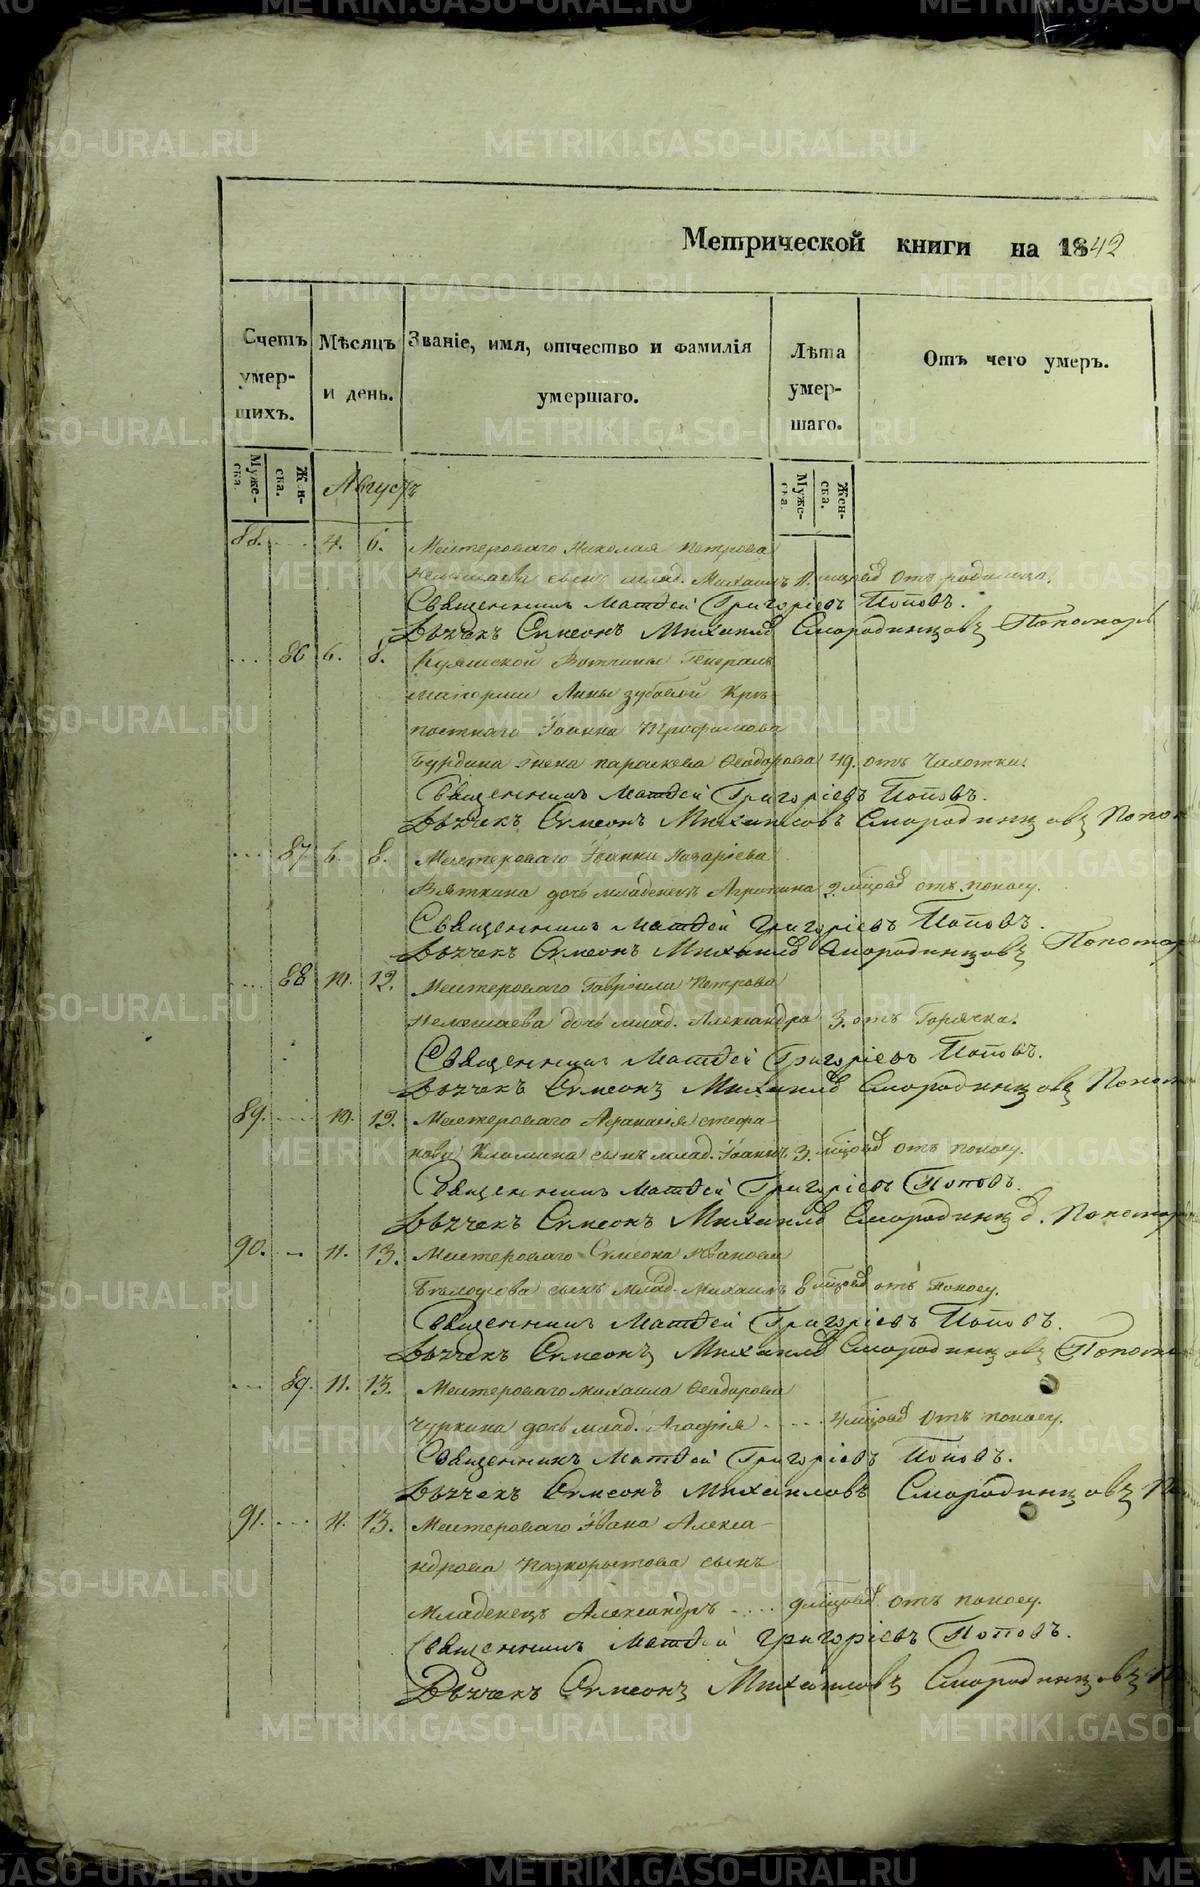 Метрической книги на 1842
Счетъ умер-шихъ.
Мѣсяцъ и день.
Званіе, имя, отчество и фамилія умершаго.
Лѣта умер-шаго.
Отъ чего умеръ.
Муже-ска.
Жен-ска.
Августъ
Муже-ска.
Жен-ска.
88. 4. 6. Мастероваго Николая Петрова
сынъ млад. Михаилъ мѣсяцовъ Отъ родимца.
Священникъ Матѳей Григоріевъ Поповъ.
Дьячекъ Симеонъ Михаиловъ Смородинцовъ Пономарь
86 6. 8. Куяшской Вотчины Генералъ
маіорши Анны Зубовой Крѣ-
постнаго Іоанна Трофимова
Бурдина жена Параскева Ѳеодорова 49. отъ чахотки.
Священникъ Матѳей Григоріевъ Поповъ.
Дьячекъ Симеонъ Михаиловъ Смородинцовъ Поном
87 6. 8. Мастероваго Іоанна Назаріева
Вяткина дочь младенецъ Агрипина 2. мѣсяцовъ отъ поносу.
Священникъ Матѳей Григоріевъ Поповъ.
Дьячекъ Симеонъ Михаиловъ Смородинцовъ Пономар
88 10. 12. Мастероваго Гавріила Петрова
дочь млад. Александра 3. отъ Горячки.
Священникъ Матѳей Григоріевъ Поповъ.
Дьячекъ Симеонъ Михаиловъ Смородинцовъ Поном
89. 10. 12. Мастероваго Аѳанасія Стефа-
нова сынъ млад. Іоаннъ 3. мѣсяцовъ отъ поносу.
Священникъ Матѳей Григоріевъ Поповъ.
Дьячекъ Симеонъ Михаиловъ Смородинц Пономар
90. 11. 13. Мастероваго Симеона Иванова
Бѣлоусова сынъ млад. Михаилъ 8 мѣсяцовъ отъ Поносу.
Священникъ Матѳей Григоріевъ Поповъ.
Дьячекъ Симеонъ Михаиловъ Смородинцовъ Поном
89. 11. 13. Мастероваго Михаила Ѳеодорова
Чуркина дочь млад. Агафія 4 мѣсяцовъ Отъ поносу.
Священникъ Матѳей Григоріевъ Поповъ.
Дьячекъ Симеонъ Михаиловъ Смородинцовъ По
91. 11. 13. Мастероваго Ивана Алекса-
ндрова Подкорытова сынъ
Младенецъ Александръ 9 мѣсяцовъ Отъ поносу.
Священникъ Матѳей Григоріевъ Поповъ.
Дьячекъ Симеонъ Михаиловъ Смородинцовъ П
METRIKI.GASO-URAL.RU